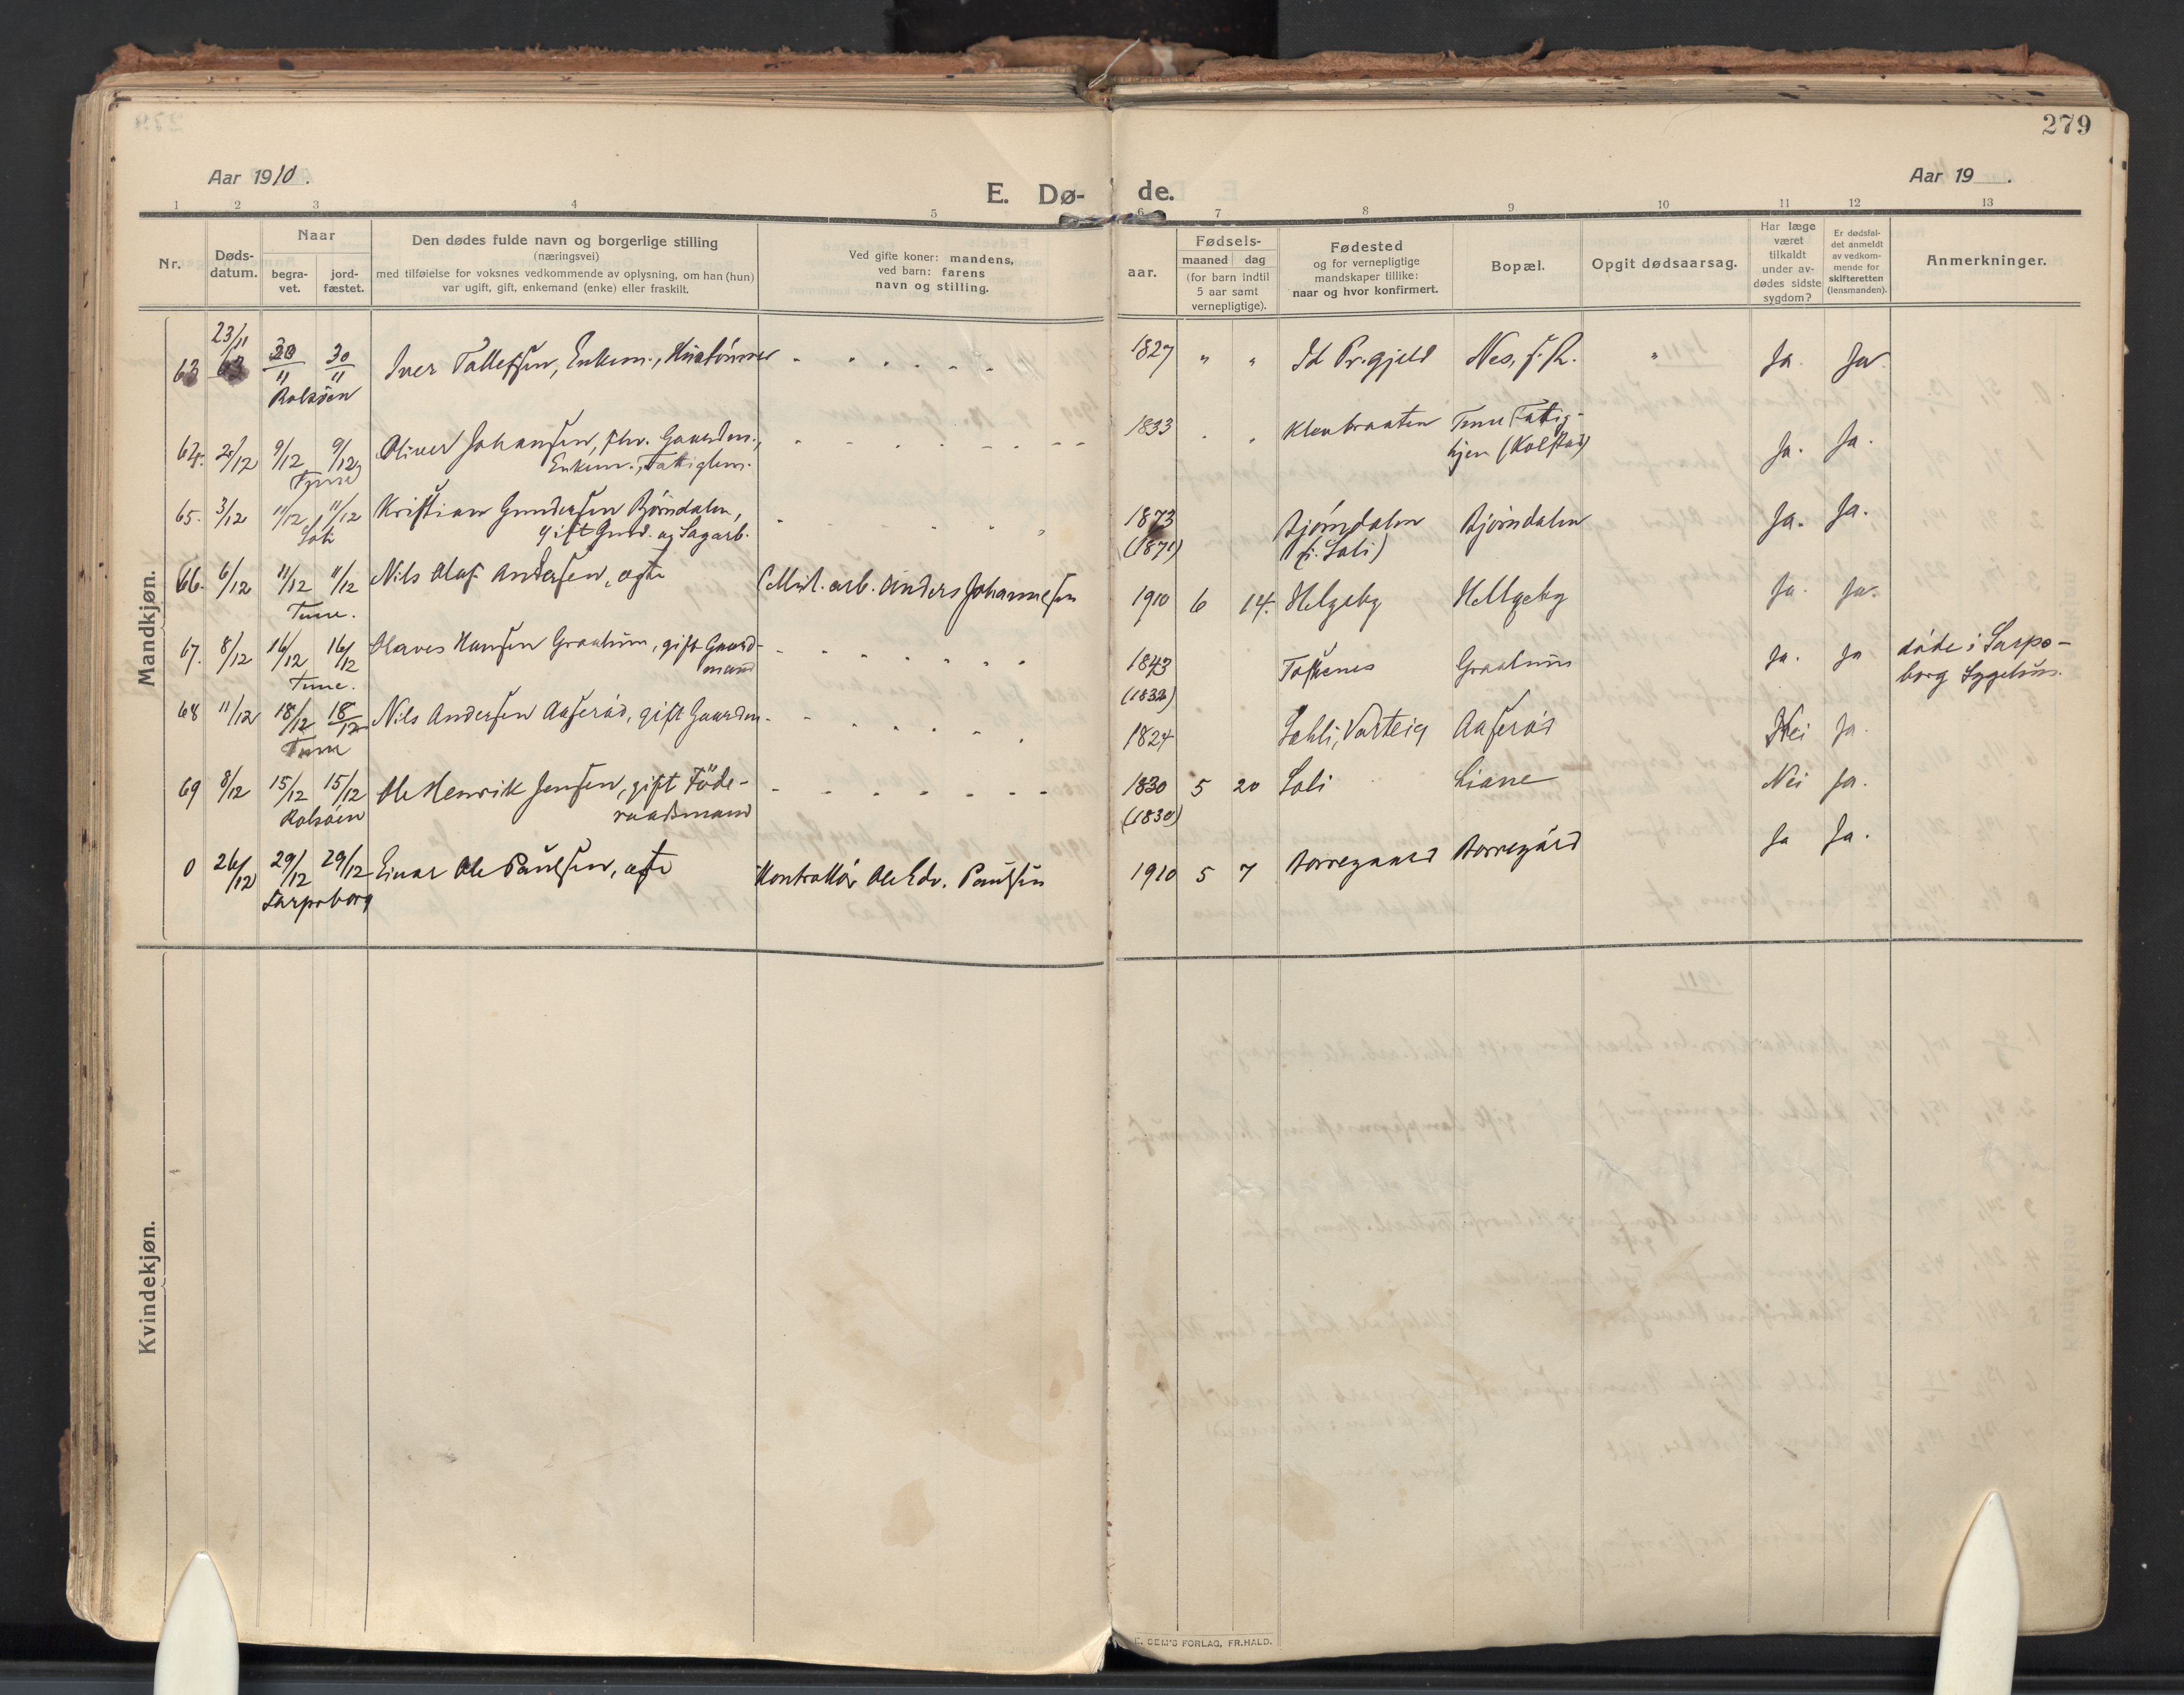 279
Aar 1910.
E. Dø- de.
Aar 19 .
1 2 3 4 5 6 7 8 9 10 11 12 13
Nr.
Døds-
datum.
Naar
begra-
vet.
jord-
fæstet.
Den dødes fulde navn og borgerlige stilling
(næringsvei)
med tilføielse for voksnes vedkommende av oplysning, om han (hun)
var ugift, gift, enkemand (enke) eller fraskilt.
Ved gifte koner: mandens,
ved barn: farens
navn og stilling.
aar.
Fødsels-
maaned dag
(for barn indtil
5 aar samt
vernepligtige).
Fødested
og for vernepligtige
mandskaper tillike:
naar og hvor konfirmert.
Bopæl.
Opgit dødsaarsag.
Har læge
været
tilkaldt
under av-
dødes sidste
sygdom?
Er dødsfal-
det anmeldt
av vedkom-
mende for
skifteretten
(lensmanden).
Anmerkninger.
Mandkjøn.
23/11
63 30/11 30/11 Iver Tollefsen, Enkem., Hustømmer 1827 " " Id Pr.gjeld Nes, " Ja. Ja
Rolsøen
64. 2/12 9/12 9/12 Oliver Johansen, fhv. Gaardm., 1833 Tune Fattig-
Tune Enkem., Fattiglem. hjem (Kolstad) Ja. Ja.
65. 3/12 11/12 11/12 Kristian Gundersen Bjørndalen, 1873 Bjørndalen Bjørndalen Ja. Ja.
Soli gift Gmd. og Sagarb. (1871) (i Soli)
66. 6/12 11/12 11/12 Nils Olaf Andersen, ægte Anders Johannesen 1910 6 14. Helgeby Hellgeby Ja. Ja.
Tune.
67. 8/12 16/12 16/12 Olaves Hansen Graalum, gift Gaard- 1843 Graalum Ja. Ja døde i Sarps-
Tune. mand (1832) borg Sygehus.
68 11/12 18/12 18/12 Nils Andersen Aaserød, gift Gaardm. 1824 Sahli, Varteig Aaserød Nei Ja.
Tune
69 8/12 15/12 15/12 Ole Henrik Jensen, gift Føde- 1830 5 20 Soli Liane Nei Ja.
Rolsøen raadsmand (1830)
0 26/12 29/12 29/12 Einar Ole Paulsen, ægte Kontrollør Ole Edv. Paulsen 1910 5 7 Borregaard Borregård Ja Ja.
Sarpsborg
Kvindekjøn.
E. SEM'S FORLAG, FR.HALD.